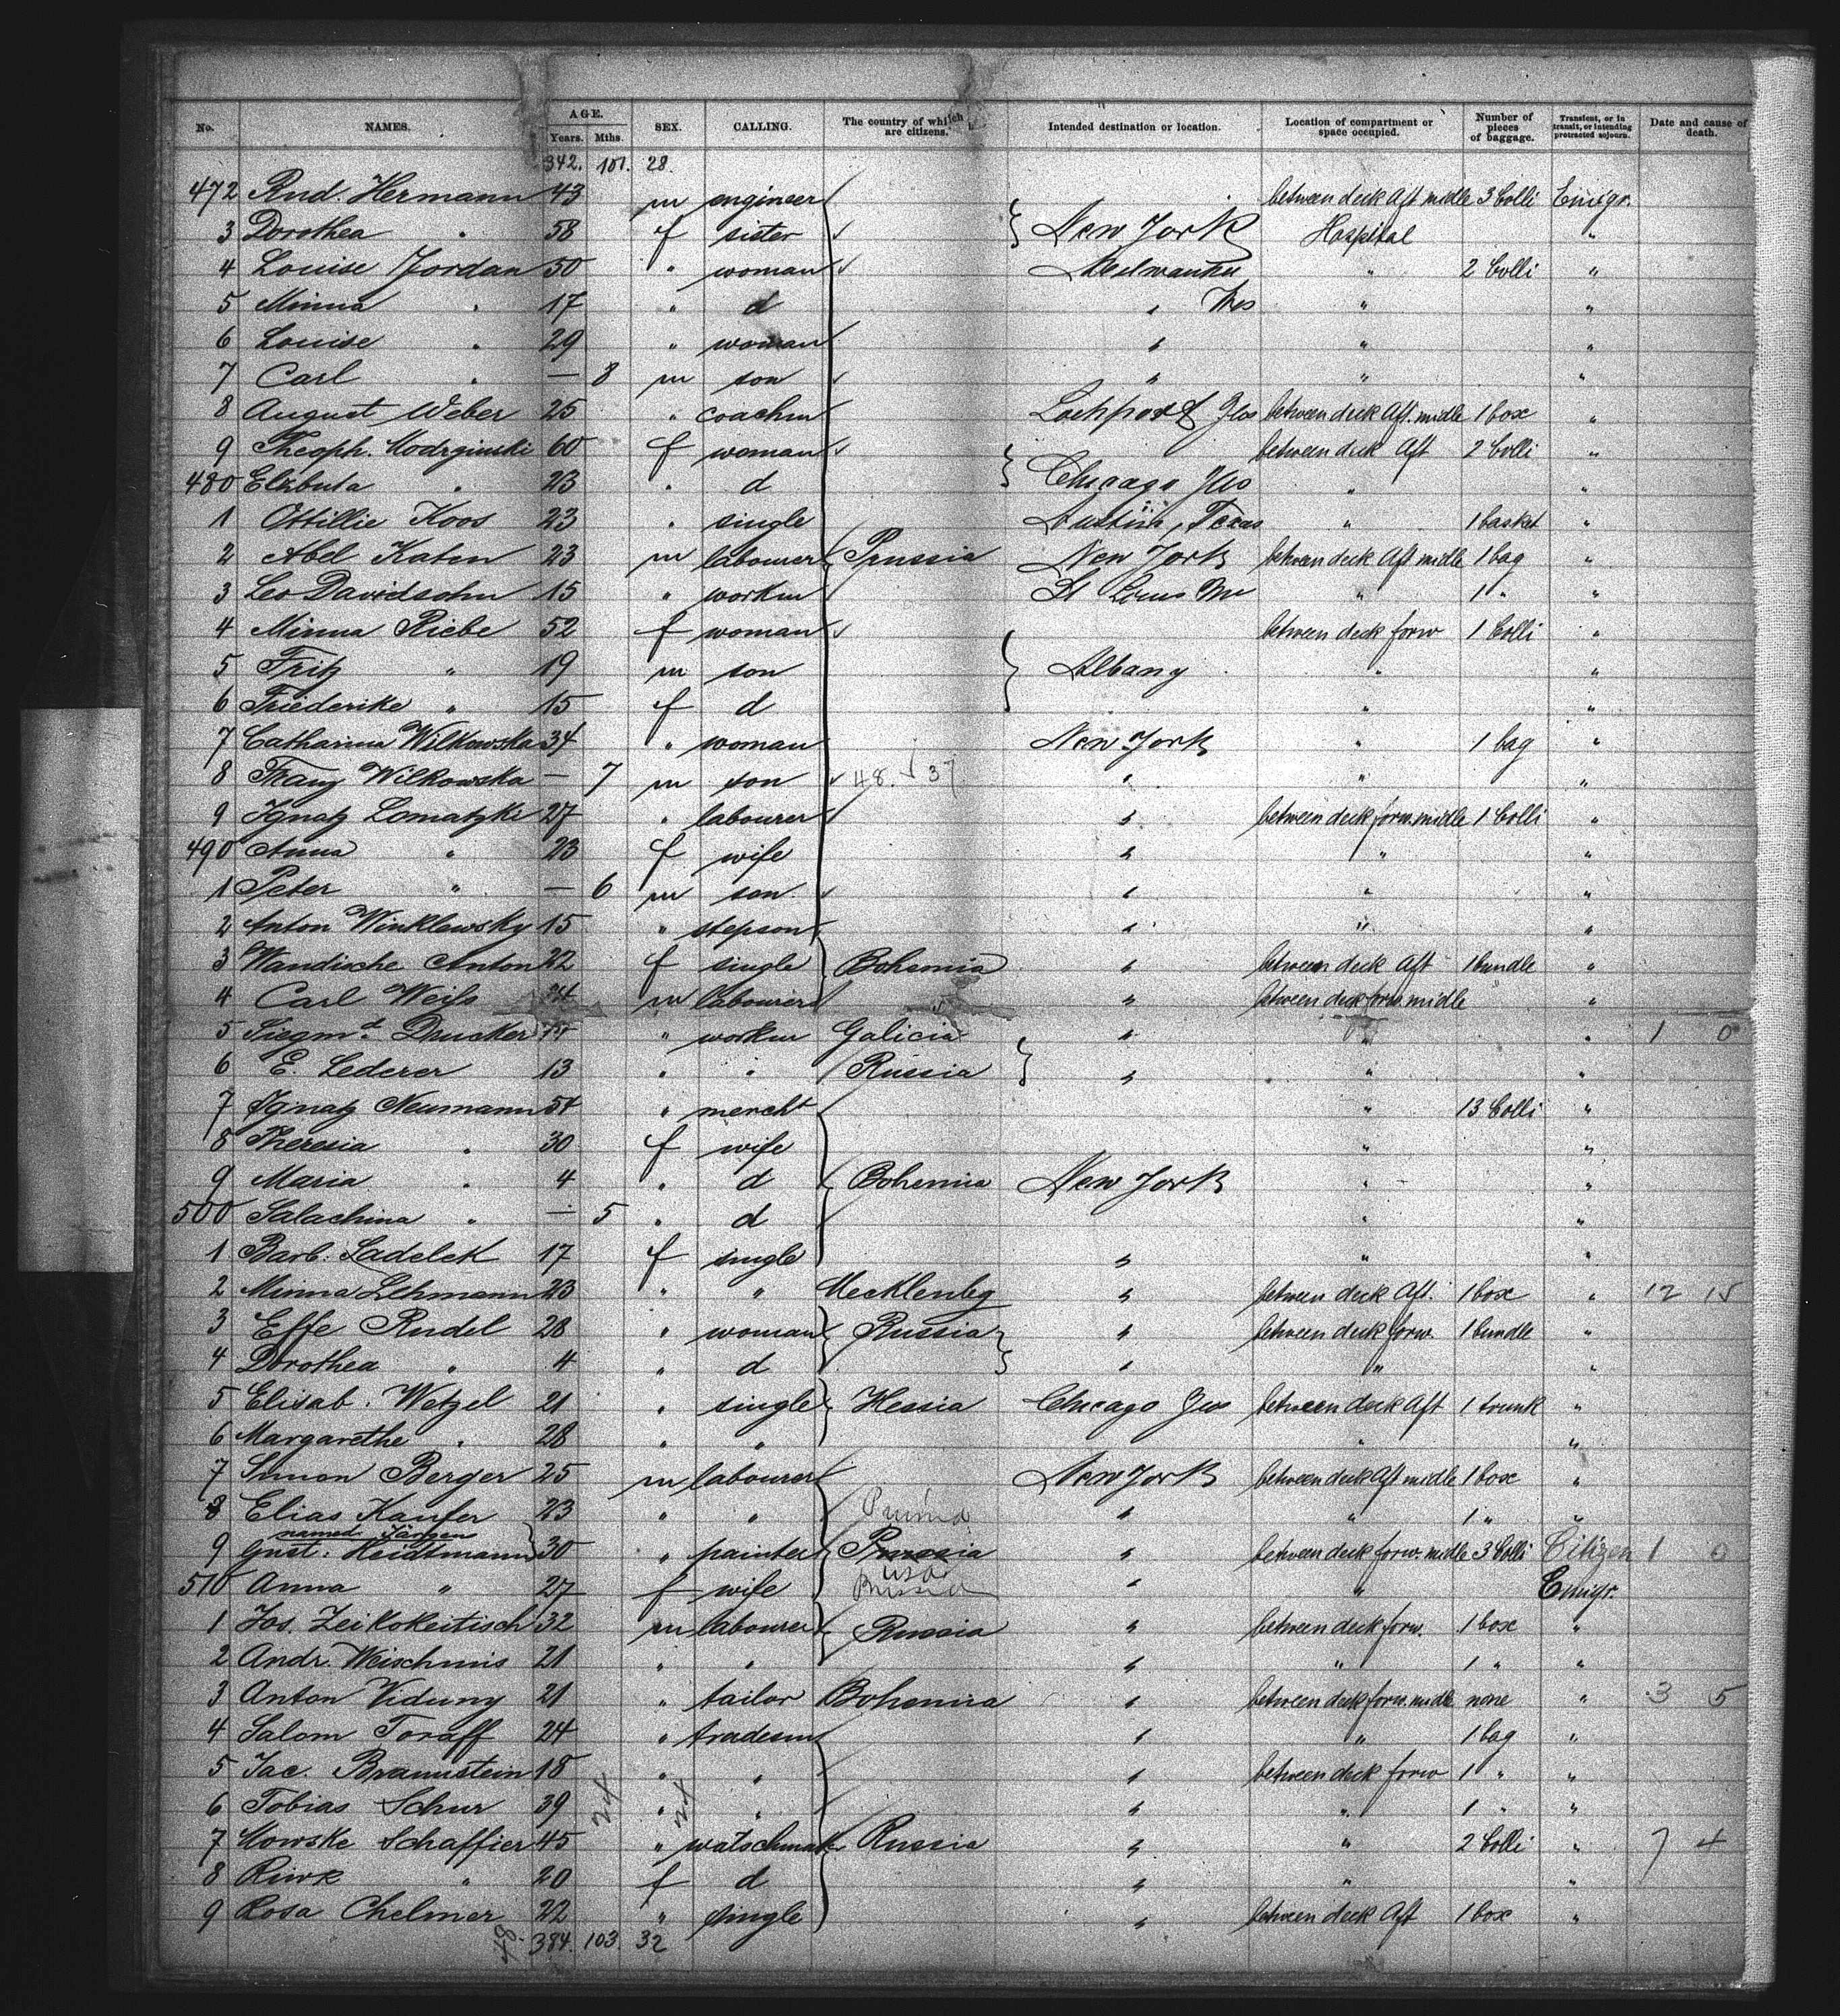 No. NAMES. AGE. Years. Mths. SEX. CALLING. The country of which are citizens. Intended destination or location. Location of compartment or space occupied. Number of pieces of baggage. Transient, or in transit, or intending protracted sojourn. Date and cause of death.
342. 101. 28.
472 Rud. Hermann 43 m engineer between deck Aft midle 3 Colli Emigr.
3 Dorothea " 58 f sister New York Hospital "
4 Louise Jordan 50 " woman " 2 Colli "
5 Minna " 17 " d " Wes " "
6 Louise " 29 " woman " " "
7 Carl " — 8 m son " " "
8 August Weber 25 " coachm Lockport Ills between deck Aft. midle 1 box "
9 Theoph. Modrginski 60 f woman between deck Aft 2 Colli "
480 Elzbuta " 23 " d Chicago Ills " "
1 Ottillie Koos 23 " single Austin, Texas " 1 basket "
2 Abel Katen 23 m labourer Prussia New York between deck Aft midle 1 bag "
3 Leo Davidsohn 15 " workm St Louis Mo " 1 " "
4 Minna Riebe 52 f woman between deck forw 1 Colli "
5 Fritz " 19 m son Albany " "
6 Friederike " 15 f d " "
7 Catharina Wilkowska 34 " woman New York " 1 bag "
8 Franz Wilkowska — 7 m son 48. 37 " " "
9 Ignatz Lomatzki 27 " labourer " between deck forw. midle 1 Colli "
490 Anna " 23 f wife " " "
1 Peter " — 6 m son " " "
2 Anton Winklewsky 15 " stepson " " "
3 Wandische Anton 22 f single Bohemia " between deck Aft 1 bundle "
4 Carl Weils m labourer " between deck forw. midle "
5 Siegmd. Drucker " workm Galicia " " " 1 0
6 E. Lederer 13 " " Russia " " "
7 Ignatz Neumann 54 " mercht " 13 Colli "
8 Theresia " 30 f wife " "
9 Maria " 4 " d Bohemia New York " "
500 Salachina " — 5 " d " "
1 Barb. Sadelek 17 f single " " "
2 Minna Lehmann 23 " " Mecklenbg " between deck Aft. 1 box " 12 15
3 Effe Rudel 28 " woman Russia " between deck forw. 1 bundle "
4 Dorothea " 4 " d " " "
5 Elisab. Wetzel 21 " single Hessia Chicago Ills between deck Aft 1 trunk "
6 Margarethe " 28 " " " "
7 Simon Berger 25 m labourer New York between deck Aft midle 1 box "
8 Elias Kaufer 23 " " " " 1 " "
named Jürgens
9 Gust. Heidtmann 30 " painter Prussia " between deck forw. midle 3 Colli Citizen 1 0
usa
510 Anna " 27 f wife Prussia " " Emigr.
1 Jos. Zeikokeitisch 32 m labourer Russia " between deck forw. 1 box "
2 Andr. Weischnis 21 " " " " 1 " "
3 Anton Viduny 21 " tailor Bohemia " between deck forw. midle none " 3 5
4 Salom Toraff 24 " tradesm " " 1 bag "
5 Jac. Braunstein 18 " " " between deck forw 1 " "
6 Tobias Schur 39 24 " 24 " " " 1 " "
7 Mowske Schaffier 45 " watschmak Russia " " 2 Colli " 7 4
8 Riwk " 20 f d " " "
9 Rosa Chelmer 22 " single " between deck Aft 1 box "
48. 384. 103. 32